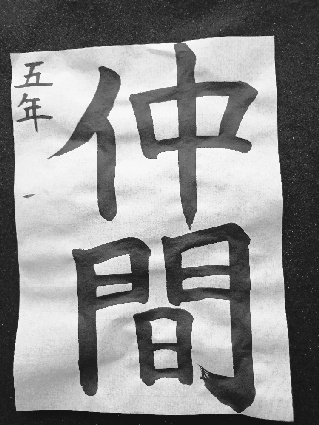 仲間
五年